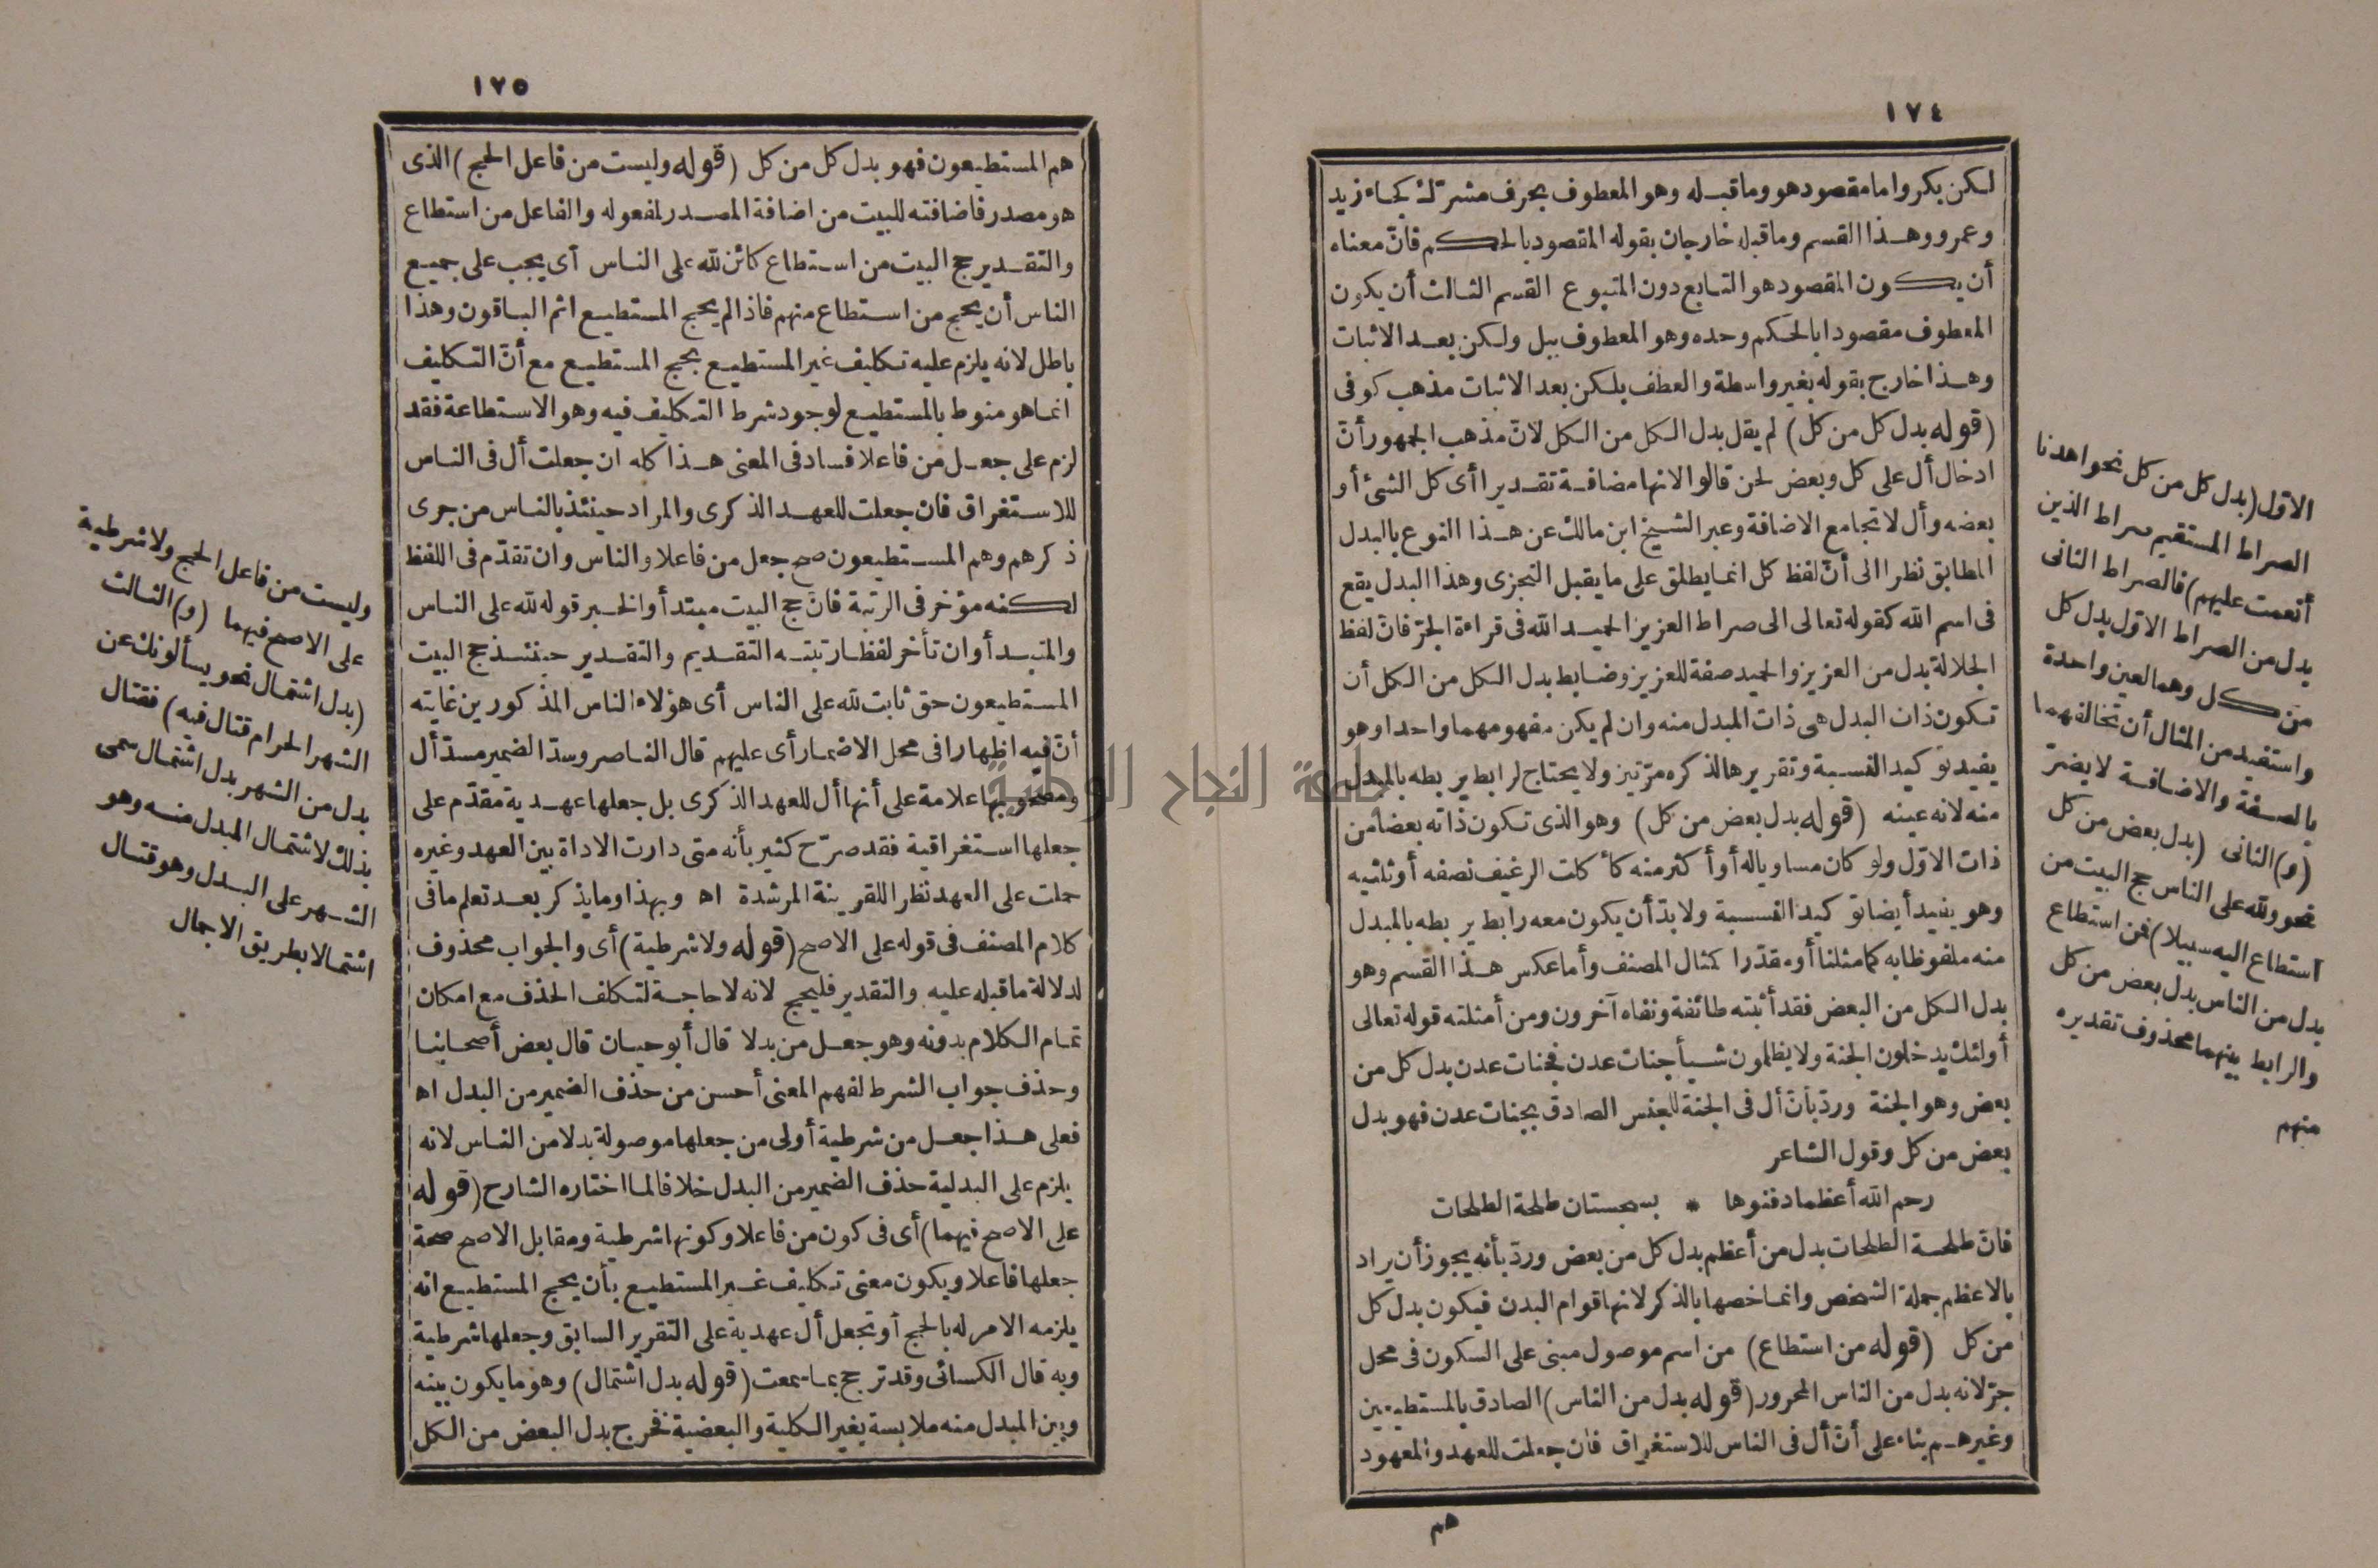 ١٧٤
لكن بكر واما مقصود هو وما قبله وهو المعطوف بحرف مشرك كجاء زيد
وعمرو وهذا القسم وما قبله خارجان بقوله المقصود بالحكم فانّ معناه
أن يكون المقصود هو التابع دون المتبوع القسم الثالث أن يكون
المعطوف مقصودا بالحكم وحده وهو المعطوف ببل ولكن بعد الاثبات
وهذا خارج بقوله بغير واسطة والعطف بلكن بعد الاثبات مذهب كوفى
(قوله بدل كل من كل) لم يقل بدل الكل من الكل لانّ مذهب الجمهور أنّ
ادخال أل على كل وبعض لحن قالوا لانها مضافة تقديرا أى كل الشئ أو
بعضه وأل لا تجامع الاضافة وعبر الشيخ ابن مالك عن هذا النوع بالبدل
المطابق نظرا الى أنّ لفظ كل انما يطلق على ما يقبل التجزى وهذا البدل يقع
فى اسم الله كقوله تعالى الى صراط العزيز الحميد الله فى قراءة الجرّ فانّ لفظ
الجلالة بدل من العزيز والحميد صفة للعزيز وضابط بدل الكل من الكل أن
تكون ذات البدل هى ذات المبدل منه وان لم يكن مفهومهما واحدا وهو
يفيد توكيد النسبة وتقريرها لذكره مرّتين ولا يحتاج لرابط يربطه بالمبدل
منه لانه عينه (قوله بدل بعض من كل) وهو الذى تكون ذاته بعضا من
ذات الاوّل ولو كان مساويا له أو أكثر منه كأكلت الرغيف نصفه أو ثلثيه
وهو يفيد أيضا توكيد النسبة ولا بدّ أن يكون معه رابط يربطه بالمبدل
منه ملفوظا به كما مثلنا أو مقدّرا كمثال المصنف وأما عكس هذا القسم وهو
بدل الكل من البعض فقد أثبته طائفة ونفاه آخرون ومن أمثلته قوله تعالى
أولئك يدخلون الجنة ولا يظلمون شيأ جنات عدن فجنات عدن بدل كل من
بعض وهو الجنة وردّ بأنّ أل فى الجنة للجنس الصادق بجنات عدن فهو بدل
بعض من كل وقول الشاعر
رحم الله أعظما دفنوها * بسجستان طلحة الطلحات
فانّ طلحة الطلحات بدل من أعظم بدل كل من بعض وردّ بأنه يجوز أن يراد
بالاعظم جملة الشخص وانما خصها بالذكر لانها قوام البدن فيكون بدل كل
من كل (قوله من استطاع) من اسم موصول مبنى على السكون فى محل
جرّ لانه بدل من الناس المجرور (قوله بدل من الناس) الصادق بالمستطيعين
وغيرهم بناء على أنّ أل فى الناس للاستغراق فان جعلت للعهد والمعهود
هم
الاوّل (بدل كل من كل نحو اهدنا
الصراط المستقيم صراط الذين
أنعمت عليهم) فالصراط الثانى
بدل من الصراط الاوّل بدل كل
من كل وهما لعين واحدة
واستفيد من المثال أن تخالفهما
بالصفة والاضافة لا يضرّ
(و) الثانى (بدل بعض من كل
نحو ولله على الناس حج البيت من
استطاع اليه سبيلا) فمن استطاع
بدل من الناس بدل بعض من كل
والرابط بينهما محذوف تقديره
منهم
١٧٥
هم المستطيعون فهو بدل كل من كل (قوله وليست من فاعل الحج) الذى
هو مصدر فاضافته للبيت من اضافة المصدر لمفعوله والفاعل من استطاع
والتقدير حج البيت من استطاع كائن لله على الناس أى يجب على جميع
الناس أن يحج من استطاع منهم فاذا لم يحج المستطيع اثم الباقون وهذا
باطل لانه يلزم عليه تكليف غير المستطيع بحج المستطيع مع أنّ التكليف
انما هو منوط بالمستطيع لوجود شرط التكليف فيه وهو الاستطاعة فقد
لزم على جعل من فاعلا فساد فى المعنى هذا كله ان جعلت أل فى الناس
للاستغراق فان جعلت للعهد الذكرى والمراد حينئذ بالناس من جرى
ذكرهم وهم المستطيعون صح جعل من فاعلا والناس وان تقدّم فى اللفظ
لكنه مؤخر فى الرتبة فانّ حج البيت مبتدأ والخبر قوله لله على الناس
والمبتدأ وان تأخر لفظا رتبته التقديم والتقدير حينئذ حج البيت
المستطيعون حق ثابت لله على الناس أى هؤلاء الناس المذكورين غايته
أنّ فيه اظهارا فى محل الاضمار أى عليهم قال الناصر وسدّ الضمير مسدّ أل
ومصحوبها علامة على أنها أل للعهد الذكرى بل جعلها عهدية مقدّم على
جعلها استغراقية فقد صرّح كثير بأنه متى دارت الاداة بين العهد وغيره
حملت على العهد نظرا للقرينة المرشدة اه وبهذا وما يذكر بعد تعلم ما فى
كلام المصنف فى قوله على الاصح (قوله ولا شرطية) أى والجواب محذوف
لدلالة ما قبله عليه والتقدير فليحج لانه لا حاجة لتكلف الحذف مع امكان
تمام الكلام بدونه وهو جعل من بدلا قال أبو حيان قال بعض أصحابنا
وحذف جواب الشرط لفهم المعنى أحسن من حذف الضمير من البدل اه
فعلى هذا جعل من شرطية أولى من جعلها موصولة بدلا من الناس لانه
يلزم على البدلية حذف الضمير من البدل خلافا لما اختاره الشارح (قوله
على الاصح فيهما) أى فى كون من فاعلا وكونها شرطية ومقابل الاصح صحة
جعلها فاعلا ويكون معنى تكليف غير المستطيع بأن يحج المستطيع انه
يلزمه الامر له بالحج أو تجعل أل عهدية على التقرير السابق وجعلها شرطية
وبه قال الكسائى وقد ترجح بما سمعت (قوله بدل اشتمال) وهو ما يكون بينه
وبين المبدل منه ملابسة بغير الكلية والبعضية فخرج بدل البعض من الكل
وليست من فاعل الحج ولا شرطية
على الاصح فيهما (و) الثالث
(بدل اشتمال نحو يسألونك عن
الشهر الحرام قتال فيه) فقتال
بدل من الشهر بدل اشتمال سمى
بذلك لاشتمال المبدل منه وهو
الشهر على البدل وهو قتال
اشتمالا بطريق الاجمال
جامعة النجاح الوطنية